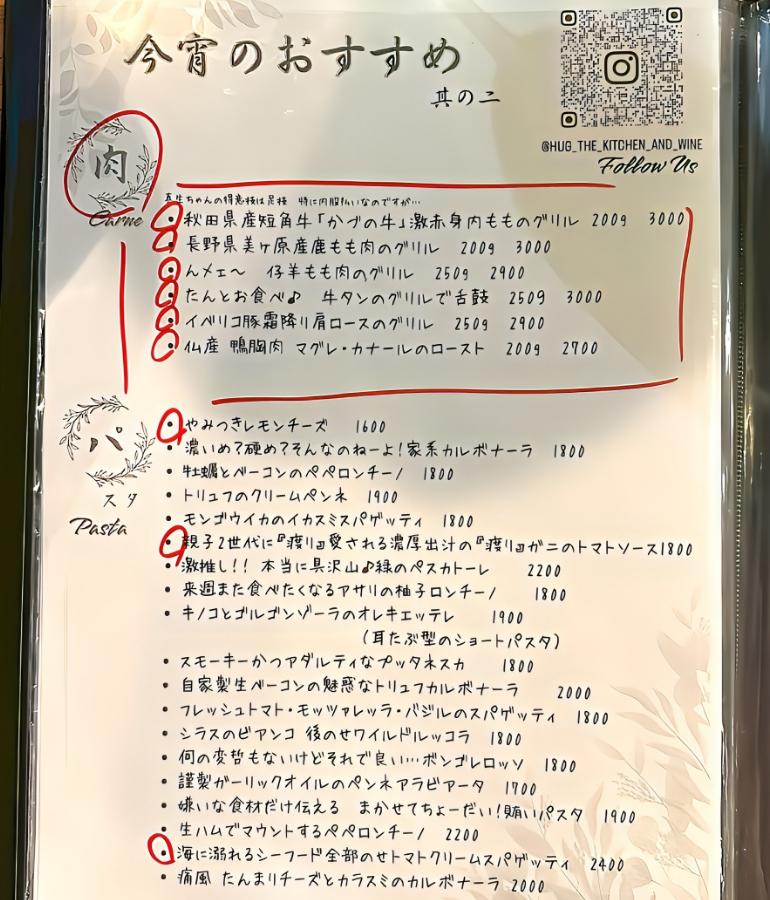 今宵のおすすめ
其の二
@HUG_THE_KITCHEN_AND_WINE
Follow Us
肉
Carne
ちゃんの得意技は足技 特に内股払いなのですが…
・秋田県産短角牛「かづの牛」激赤身内もものグリル 200g 3000
・長野県美ヶ原産鹿もも肉のグリル 200g 3000
・んメェ〜 仔羊もも肉のグリル 250g 2900
・たんとお食べ♪ 牛タンのグリルで舌鼓 250g 3000
・イベリコ豚霜降り肩ロースのグリル 250g 2900
・仏産 鴨胸肉 マグレ・カナールのロースト 200g 2700
パスタ
Pasta
・やみつきレモンチーズ 1600
・濃いめ?硬め?そんなのねーよ!家系カルボナーラ 1800
・牡蠣とベーコンのペペロンチーノ 1800
・トリュフのクリームペンネ 1900
・モンゴウイカのイカスミスパゲッティ 1800
・親子2世代に『渡り』愛される濃厚出汁の『渡り』ガニのトマトソース1800
・激推し!! 本当に具沢山♪緑のペスカトーレ 2200
・来週また食べたくなるアサリの柚子ロンチーノ 1800
・キノコとゴルゴンゾーラのオレキエッテレ 1900
(耳たぶ型のショートパスタ)
・スモーキーかつアダルティなプッタネスカ 1800
・自家製生ベーコンの魅惑なトリュフカルボナーラ 2000
・フレッシュトマト・モッツァレッラ・バジルのスパゲッティ 1800
・シラスのビアンコ 後のせワイルドルッコラ 1800
・何の変哲もないけどそれで良い…ボンゴレロッソ 1800
・謹製ガーリックオイルのペンネアラビアータ 1700
・嫌いな食材だけ伝える まかせてちょーだい!賄いパスタ 1900
・生ハムでマウントするペペロンチーノ 2200
・海に溺れるシーフード全部のせトマトクリームスパゲッティ 2400
・痛風 たんまりチーズとカラスミのカルボナーラ 2000